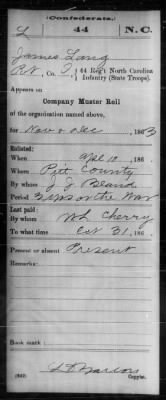 (Confederate.)
L 44 N.C.
James Lang
Pvt, Co. 44 Reg't North Carolina
Infantry (State Troops).
Appears on
Company Muster Roll
of the organization named above,
for Nov & Dec, 1863
Enlisted:
When Apl 10, 186 .
Where Pitt County
By whom J J Bland
Period 3 yrs or the War
Last paid:
By whom W L Cherry
To what time Oct 31, 186 .
Present or absent Present
Remarks:
Book mark:
(642) Copyist.